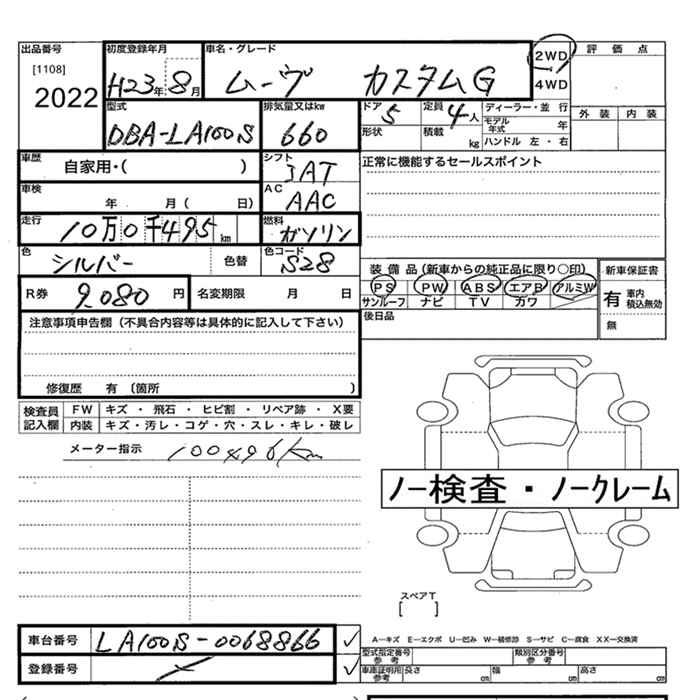 出品番号
[1108]
2022
初度登録年月
H23年8月
車名・グレード
ムーヴ カスタムG
2WD
4WD
評価点
外装 内装
型式
DBA-LA100S
排気量又はkw
660
ドア 5
定員 4人
形状
積載 kg
ディーラー・並 行
モデル年式 年
ハンドル 左・右
車歴 自家用・( )
シフト
AT
正常に機能するセールスポイント
車検 年 月( 日)
AC
AAC
走行 10万0千495km
燃料
ガソリン
色 シルバー 色替
色コード
S28
装備品(新車からの純正品に限り○印)
PS PW ABS エアB アルミW
サンルーフ ナビ TV カワ
新車保証書
有 車内積込無効
無
R券 9.080円
名変期限 月 日
後日品
注意事項申告欄(不具合内容等は具体的に記入して下さい)
修復歴 有(箇所 )
検査員記入欄
FW キズ・飛石・ヒビ割・リペア跡・X要
内装 キズ・汚レ・コゲ・穴・スレ・キレ・破レ
メーター指示 100496km
ノー検査・ノークレーム
スペアT
[ ]
車台番号 LA100S-0068866
登録番号
A−キズ E−エクボ U−凹み W−補修跡 S−サビ C−腐食 XX−交換済
型式指定番号
参考
類別区分番号
参考
車庫証明用
参考
長さ cm
幅 cm
高さ cm